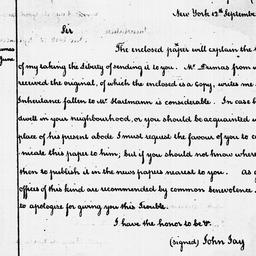 New York 12th September
Sir
The enclosed paper will explain the
of my taking the liberty of sending it to you. Mr Dumas from w
received the original, of which the enclosed is a copy, writes me
Inheritance fallen to Mr Hartmann is considerable. In case
dwell in your neighbourhood, or you should be acquainted
place of his present abode I must request the favour of you to c
nicate this paper to him; but if you should not know where
then to publish it in the news papers nearest to you. as
offices of this kind are recommended by common benevolence
to apologize for giving you this Trouble.
I have the honor to be &.
(signed) John Jay